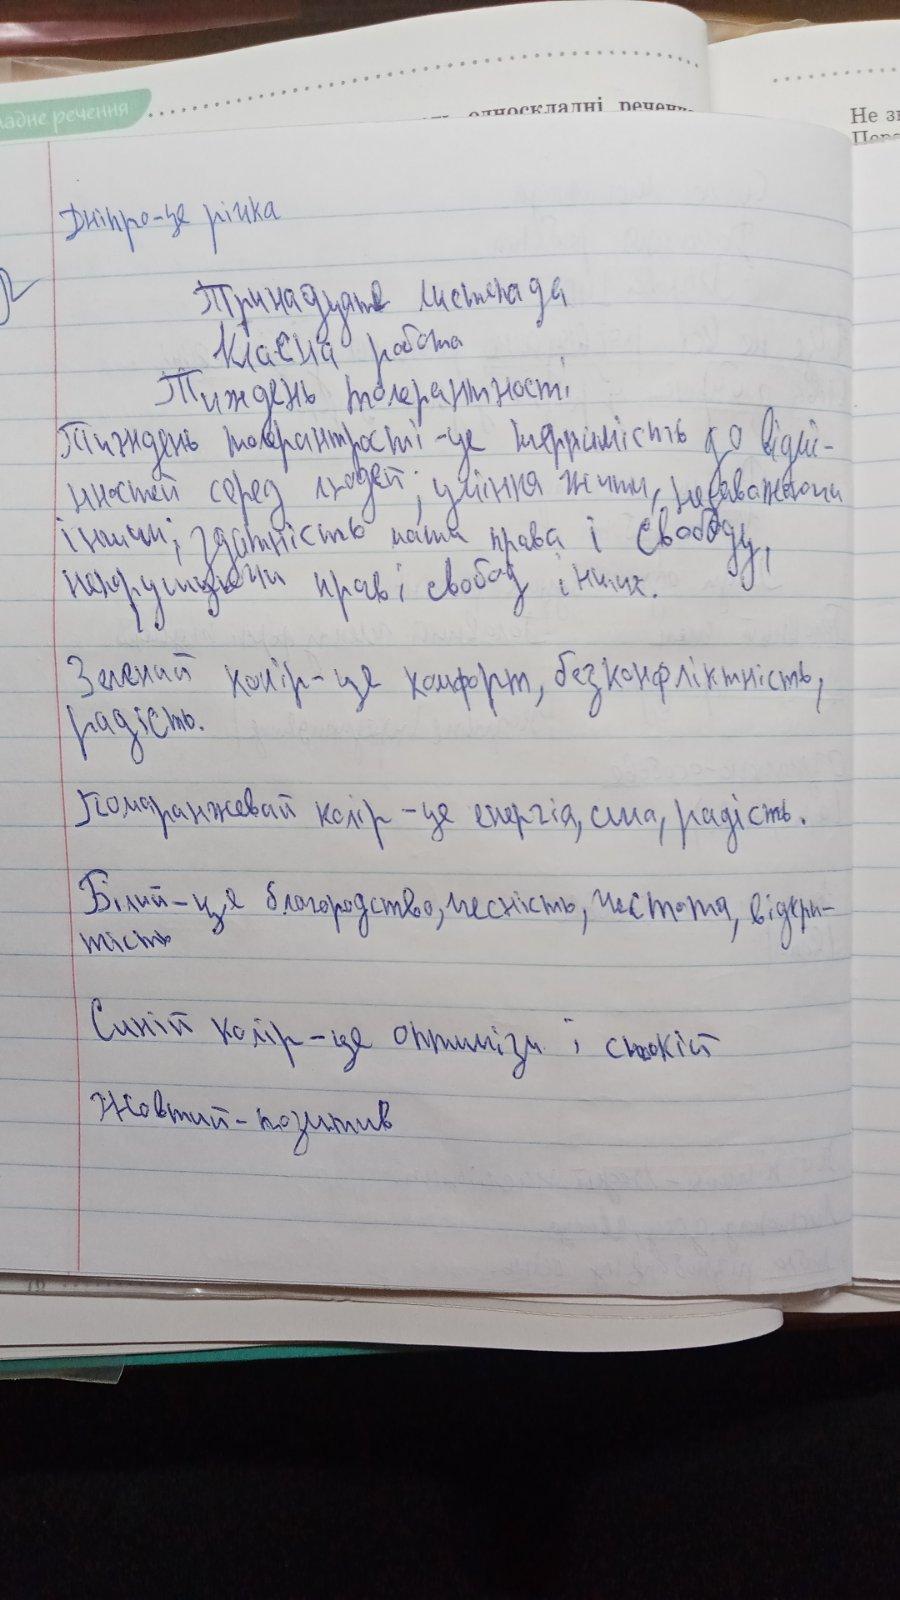 ладне речення
односкладні речення
Не зн
Дніпро-це річка
Тринадцяте листопада
Класна робота
Тиждень толерантності
Тиждень толерантності-це терпимість до відмі-
нностей серед людей; уміння жити, незаважаючи
іншим; здатність мати права і свободу,
непорушуючи прав і свобод інших.
Зелений колір-це комфорт, безконфліктність,
радість.
Помаранжевай колір-це енергія, сила, радість.
Білий-це благородство, чесність, чистота, відкри-
тість
Синій колір-це оптимізм і спокій
Жовтий-позитив